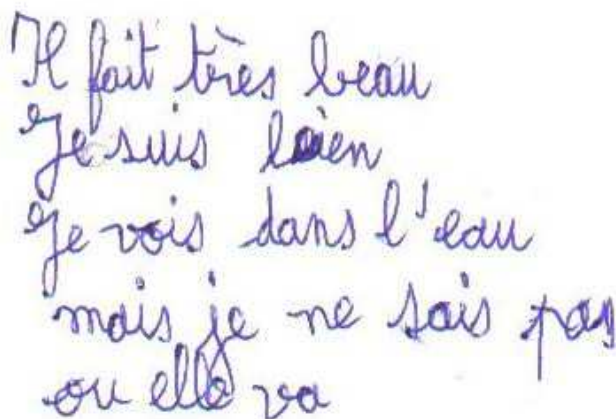 Il fait très beau
Je suis bien
Je vois dans l'eau
mais je ne sais pas
ou elle va